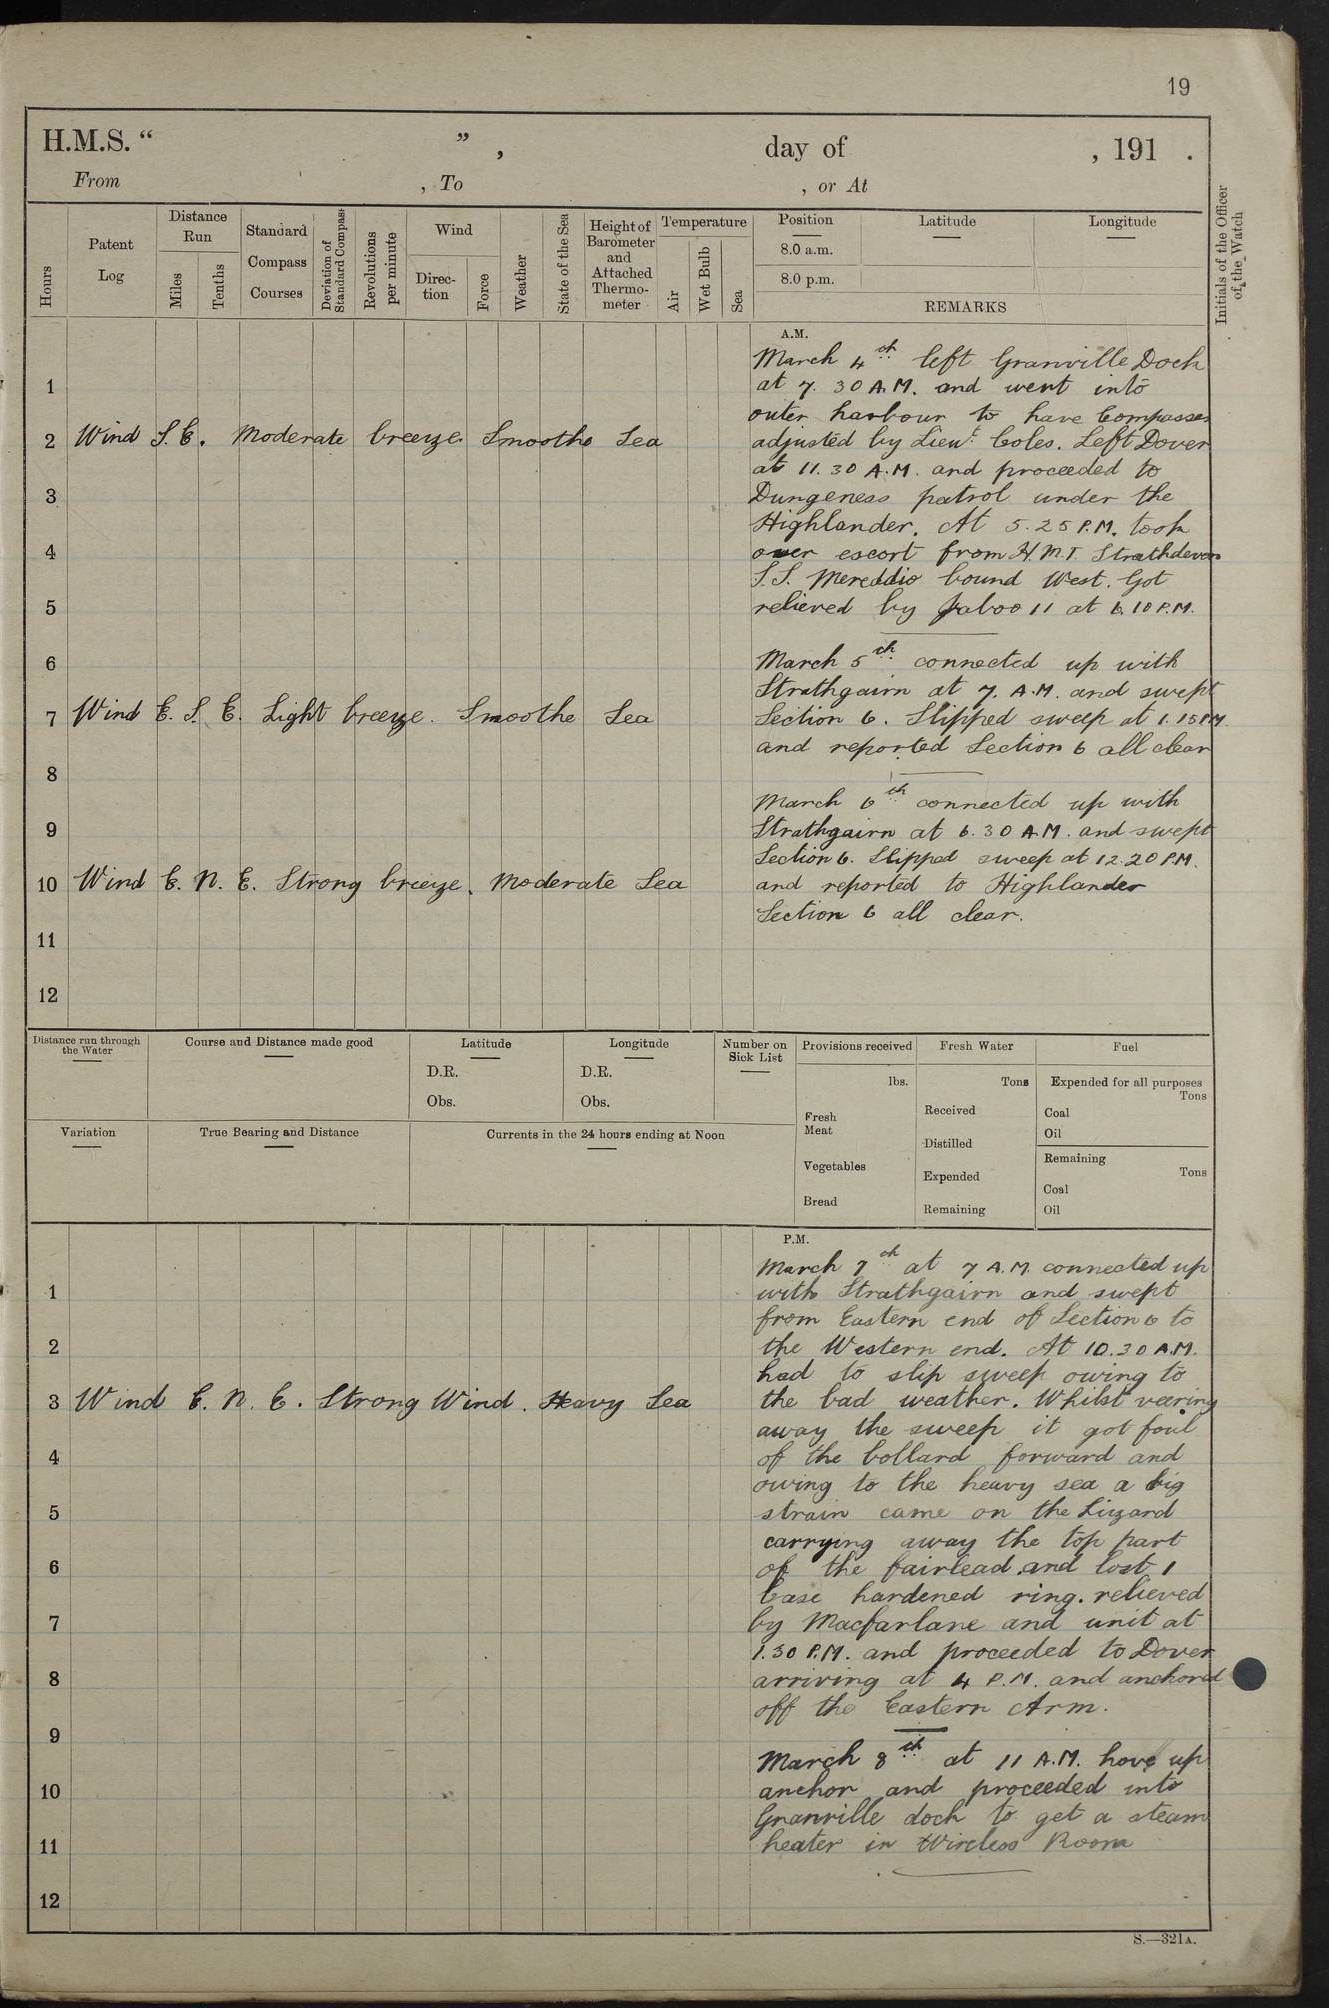 19
H.M.S. “ ” , day of , 191 .
From , To , or At
Hours
Patent Log
Distance Run
Miles
Tenths
Standard Compass Courses
Deviation of Standard Compass
Revolutions per minute
Wind
Direc-tion
Force
Weather
State of the Sea
Height of Barometer and Attached Thermo-meter
Temperature
Air
Wet Bulb
Sea
Position Latitude Longitude
8.0 a.m.
8.0 p.m.
REMARKS
Initials of the Officer of the Watch
A.M.
March 4th left Granville Dock
1
at 7. 30 A.M. and went into
outer harbour to have Compasses
2 Wind S.E. Moderate breeze. Smoothe Sea
adjusted by Lieut. Coles. Left Dover
at 11.30 A.M. and proceeded to
3
Dungeness patrol under the
Highlander. At 5.25 P.M. took
4
over escort from H.M.T. Strathdevon
S.S. Mereddio bound West. Got
5
relieved by 11 at 6.10 P.M.
6
March 5th connected up with
Strathgairn at 7. A.M. and swept
7 Wind E. S. E. Light breeze. Smoothe Sea
Section 6. Slipped sweep at 1.15 P.M.
and reported Section 6 all clear
8
March 6th connected up with
9
Strathgairn at 6.30 A.M. and swept
Section 6. Slipped sweep at 12.20 P.M.
10 Wind E. N. E. Strong breeze. Moderate Sea
and reported to Highlander
Section 6 all clear.
11
12
Distance run through the Water
Course and Distance made good
Latitude
D.R.
Obs.
Longitude
D.R.
Obs.
Number on Sick List
Provisions received
lbs.
Fresh Meat
Vegetables
Bread
Fresh Water
Tons
Received
Distilled
Expended
Remaining
Fuel
Expended for all purposes
Tons
Coal
Oil
Remaining
Tons
Coal
Oil
Variation
True Bearing and Distance
Currents in the 24 hours ending at Noon
P.M.
March 7th at 7 A.M. connected up
1
with Strathgairn and swept
from Eastern end of Section 6 to
2
the Western end. At 10.30 A.M.
had to slip sweep owing to
3 Wind E. N. E. Strong Wind. Heavy Sea
the bad weather. Whilst veering
away the sweep it got foul
4
of the bollard forward and
owing to the heavy sea a big
5
strain came on the Lizard
carrying away the top part
6
of the fairlead and lost 1
Case hardened ring. relieved
7
by Macfarlane and unit at
1.30 P.M. and proceeded to Dover
8
arriving at 4 P.M. and anchored
off the Eastern Arm.
9
March 8th at 11 A.M. hove up
10
anchor and proceeded into
Granville dock to get a steam
11
heater in Wireless Room
12
S.—321A.